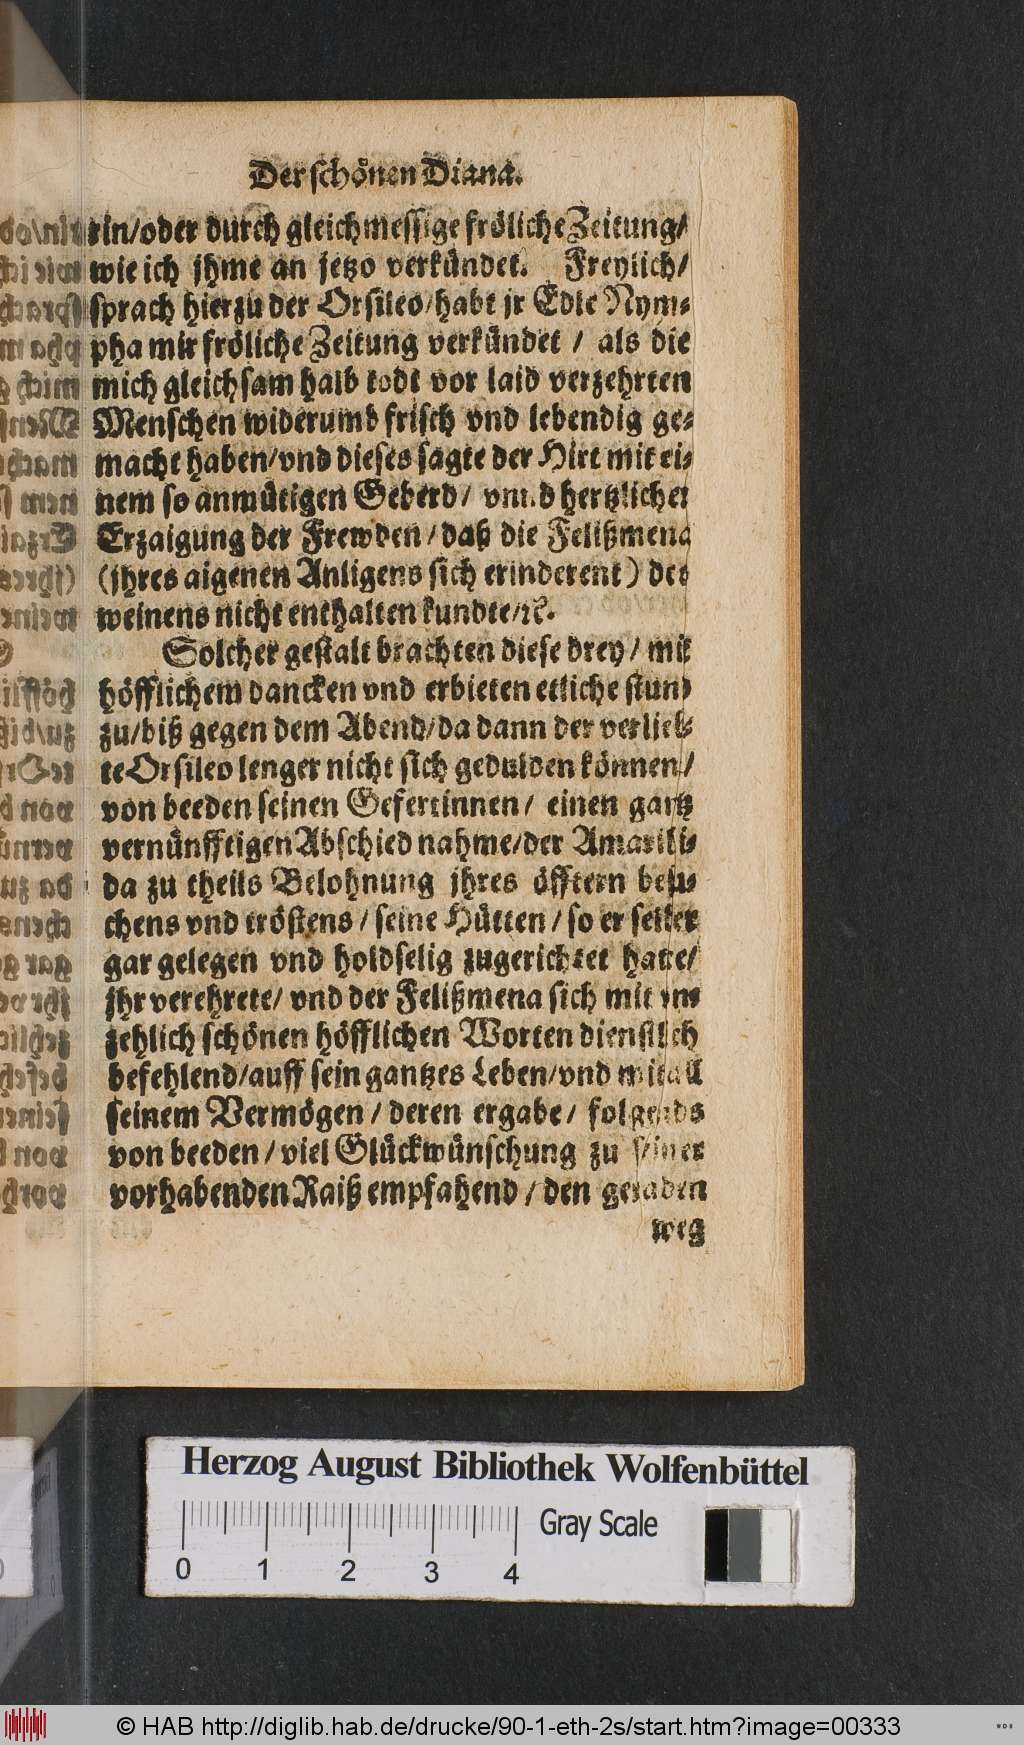 Der schönen Diana.
rin/oder durch gleichmessige fröliche Zeitung/
wie ich jhme an jetzo verkündet. Freylich/
sprach hierzu der Orsileo/habt jr Edle Nym-
pha mir fröliche Zeitung verkündet / als die
mich gleichsam halb todt vor laid verzehrten
Menschen widerumb frisch vnd lebendig ge-
macht haben/vnd dieses sagte der Hirt mit ei-
nem so anmütigen Geberd/ vnnd hertzlicher
Erzaigung der Frewden/daß die Felißmena
(jhres aigenen Anligens sich erinderent) des
weinens nicht enthalten kundte/ꝛc.
Solcher gestalt brachten diese drey/ mit
höfflichem dancken vnd erbieten etliche stund
zu/biß gegen dem Abend/da dann der verlieb-
te Orsileo lenger nicht sich gedulden können/
von beeden seinen Gefertinnen/ einen gantz
vernünfftigen Abschied nahme/der Amarili-
da zu theils Belohnung jhres öfftern besu-
chens vnd tröstens/seine Hütten/so er selber
gar gelegen vnd holdselig zugerichtet hatte/
jhr verehrete/ vnd der Felißmena sich mit vn-
zehlich schönen höfflichen Worten dienstlich
befehlend/auff sein gantzes Leben/vnd mit all
seinem Vermögen/deren ergabe/ folgends
von beeden/viel Glückwünschung zu seiner
vorhabenden Raiß empfahend/den geraden
weg
Herzog August Bibliothek Wolfenbüttel
0 1 2 3 4 Gray Scale
© HAB http://diglib.hab.de/drucke/90-1-eth-2s/start.htm?image=00333